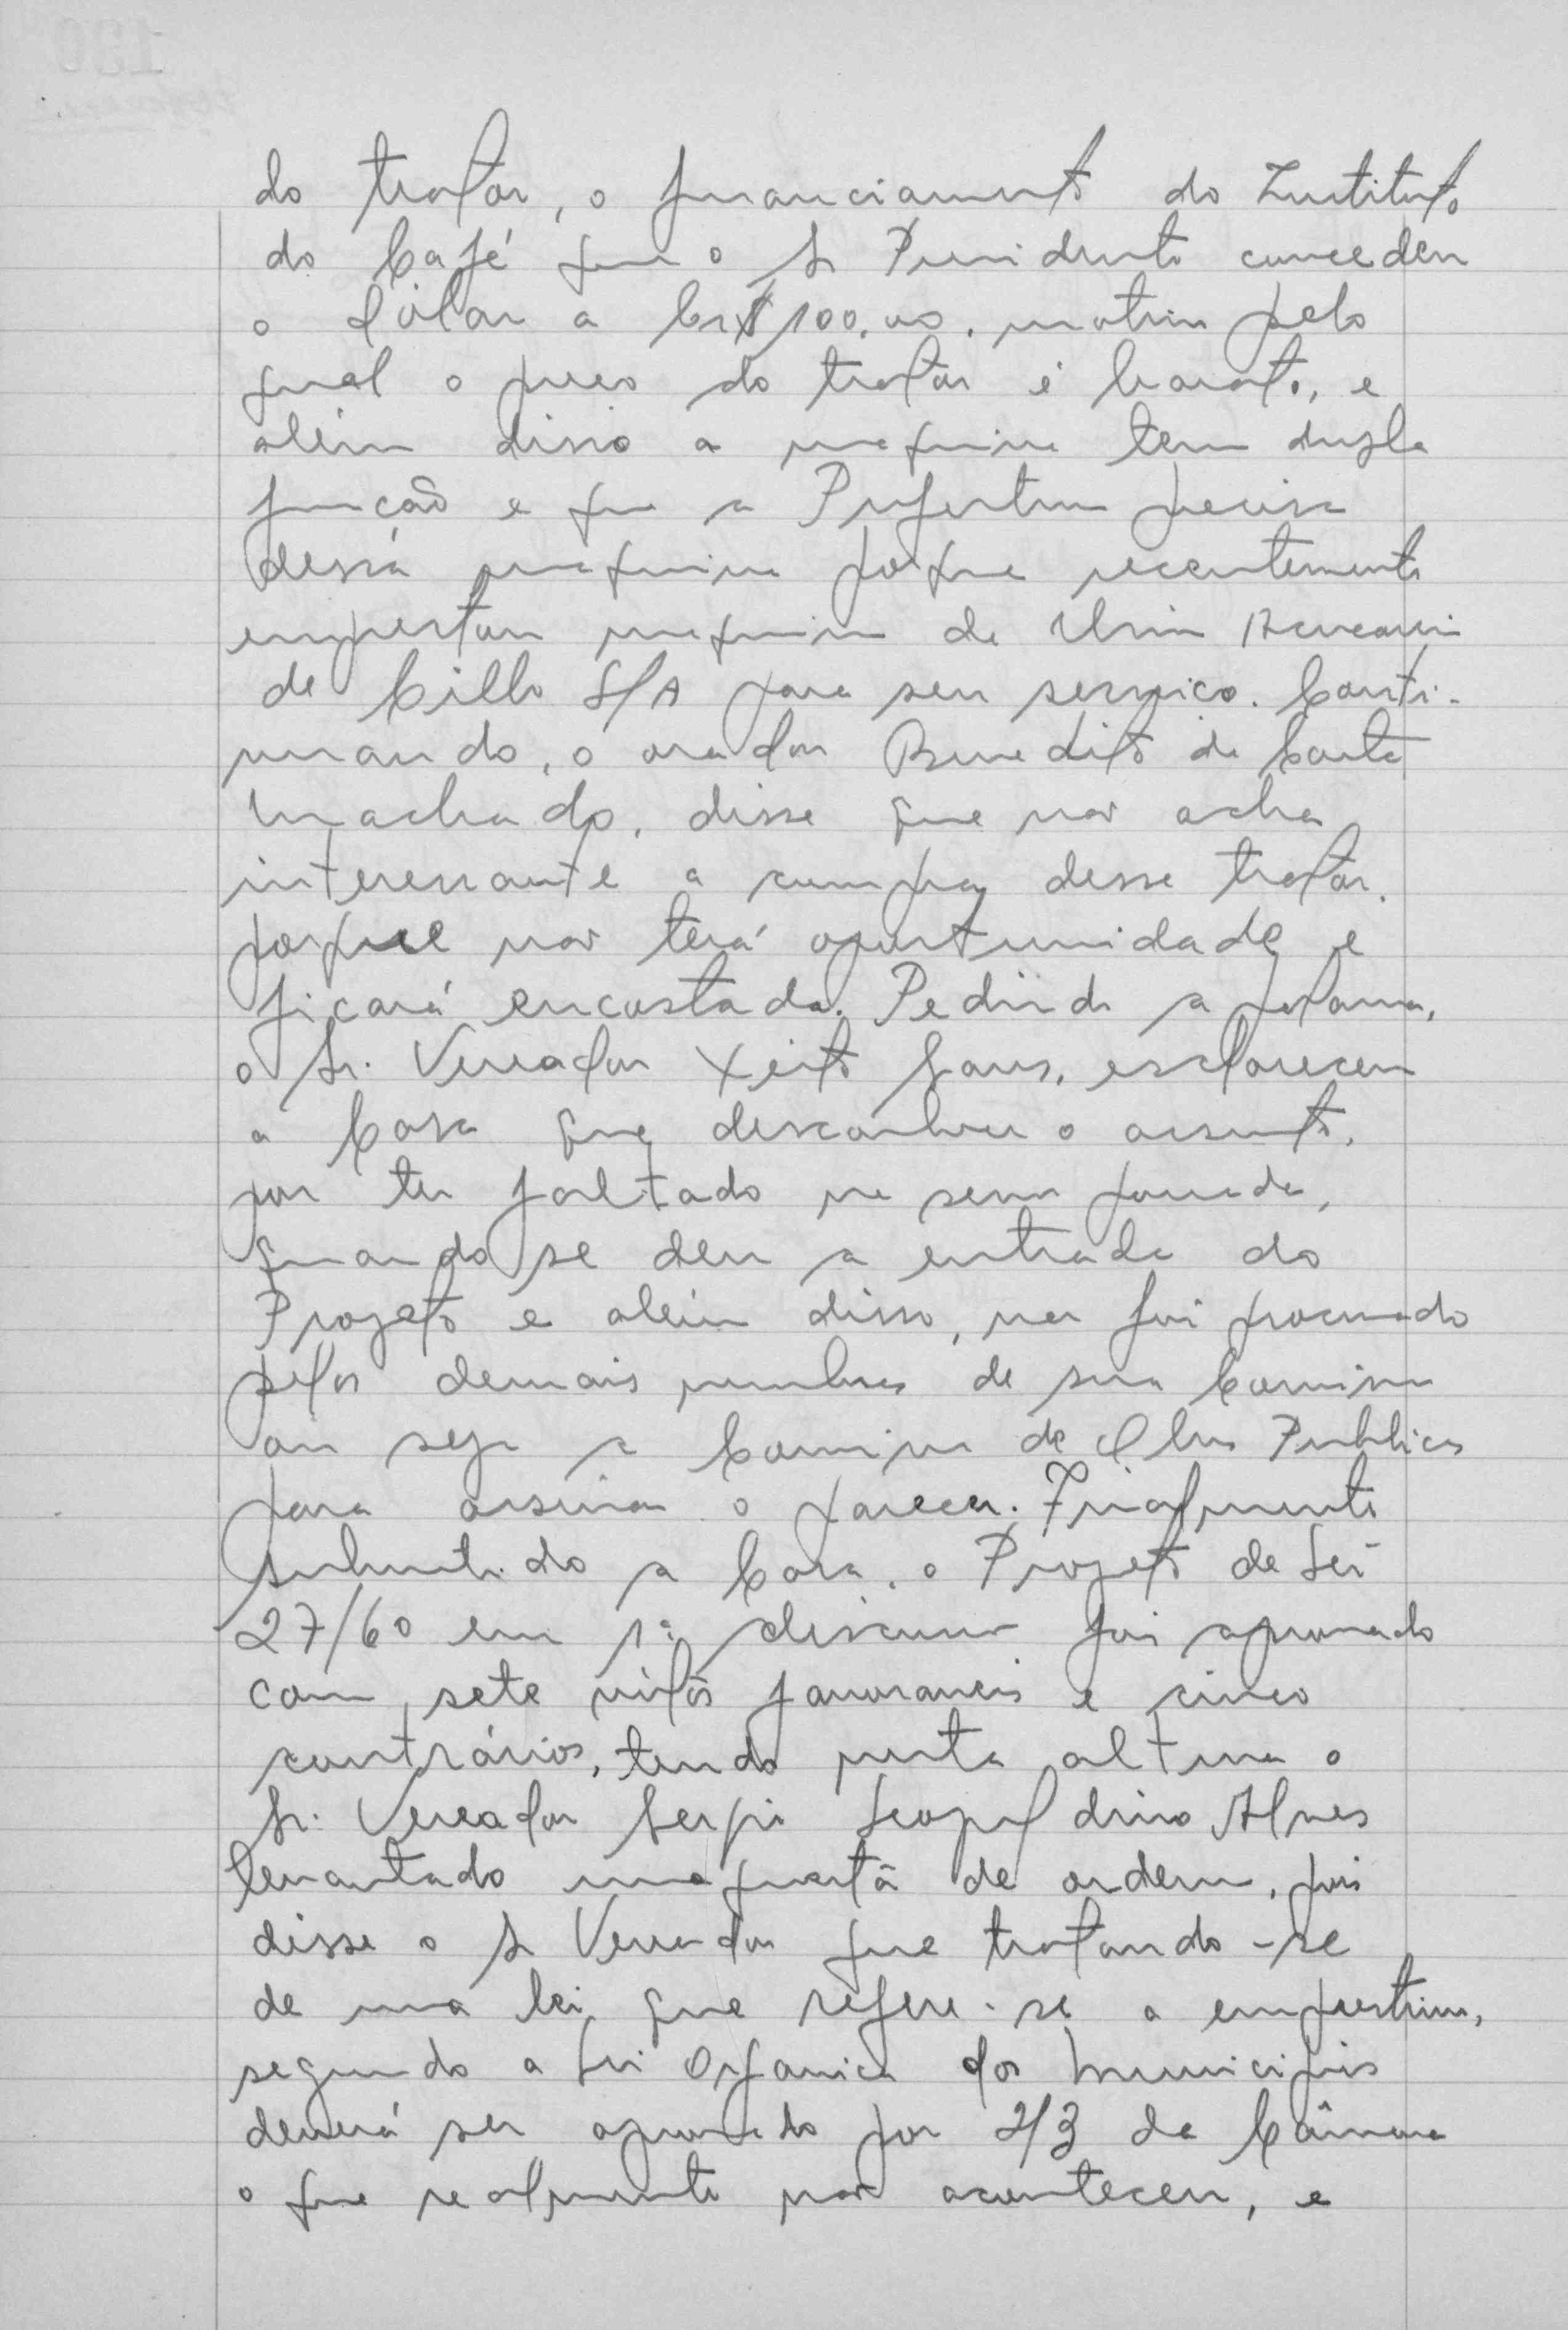 do trator, o financiamento do Instituto
do Café que o Sr Presidente concedeu
o dólar a Cr$ 100,00. motivo pelo
qual o preço do trator é barato, e
além disso a maquina tem dupla
função e que a Prefeitura precisa
dessa maquina porque recentemente
emprestou maquina de Usina Açucareira
de Cillo S/A para seu serviço. Conti-
nuando, o orador Benedito da Costa
Machado, disse que não acha
interessante a compra desse trator.
porque não terá oportunidade e
ficará encostada. Pedindo a palavra,
o Sr. Vereador Xeito esclareceu
a Casa que desconhece o assunto,
por ter faltado na sessão passada,
quando se deu a entrada do
Projeto e além disso, não foi procurado
pelos demais membros de sua Comissão
ou seja a Comissão de Obras Publicas
para assinar o parecer. Finalmente
submetido a Casa, o Projeto de Lei
27/60 em 1ª discussão foi aprovado
com sete votos favoraveis e cinco
contrários, tendo nesta altura o
Sr. Vereador Sergio Leopoldino Alves
levantado uma questã de ordem, pois
disse o Sr Vereador que tratando-se
de uma lei que refere-se a emprestimo,
segundo a Lei Organica dos Municipios
deverá ser aprovado por 2/3 da Câmara
o que realmente não aconteceu, e